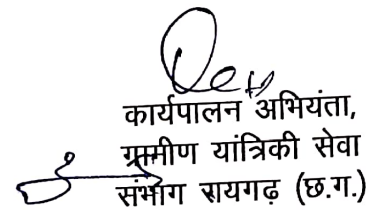 कार्यपालन अभियंता,
ग्रामीण यांत्रिकी सेवा
संभाग रायगढ़ (छ.ग.)